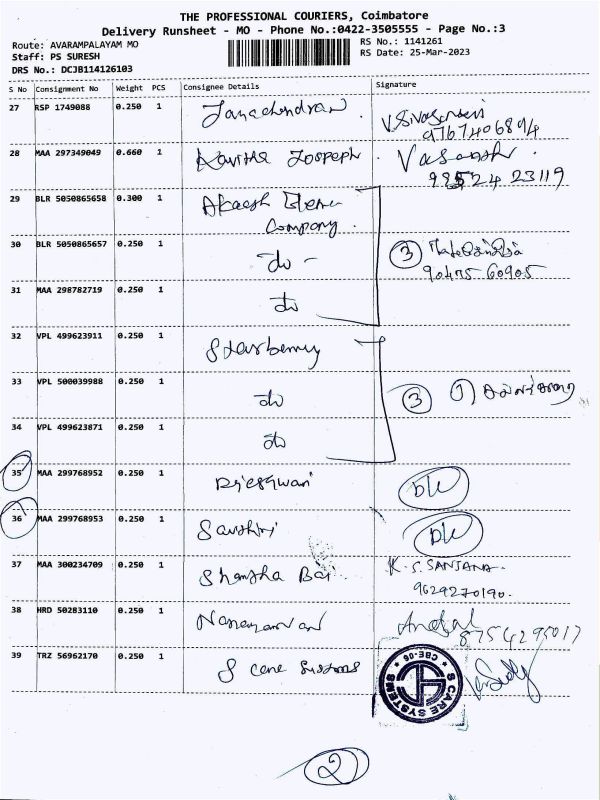 THE PROFESSIONAL COURIERS, Coimbatore
Delivery Runsheet - MO - Phone No.:0422-3505555 - Page No.:3
Route: AVARAMPALAYAM MO
RS No.: 1141261
Staff: PS SURESH
RS Date: 25-Mar-2023
DRS No.: DCJB114126103
S No Consignment No Weight PCS Consignee Details Signature
27 RSP 1749088 0.250 1
9767406894
28 MAA 297349049 0.660 1 Kavitha Jospeph Vasanth
98524 23119
29 BLR 5050865658 0.300 1 Akaash
Company.
30 BLR 5050865657 0.250 1 do - 3
90475 60905
31 MAA 298782719 0.250 1 do
32 VPL 499623911 0.250 1 Starberry
33 VPL 500039988 0.250 1 do 3
34 VPL 499623871 0.250 1 do
35 MAA 299768952 0.250 1 DW
36 MAA 299768953 0.250 1 DW
37 MAA 300234709 0.250 1 Shantha Bai K.S. SANJANA.
9629270190.
38 HRD 50283110 0.250 1 Narayanan
8754295017
39 TRZ 56962170 0.250 1 S cane Systems
S CARE SYSTEMS
CBE-06
2